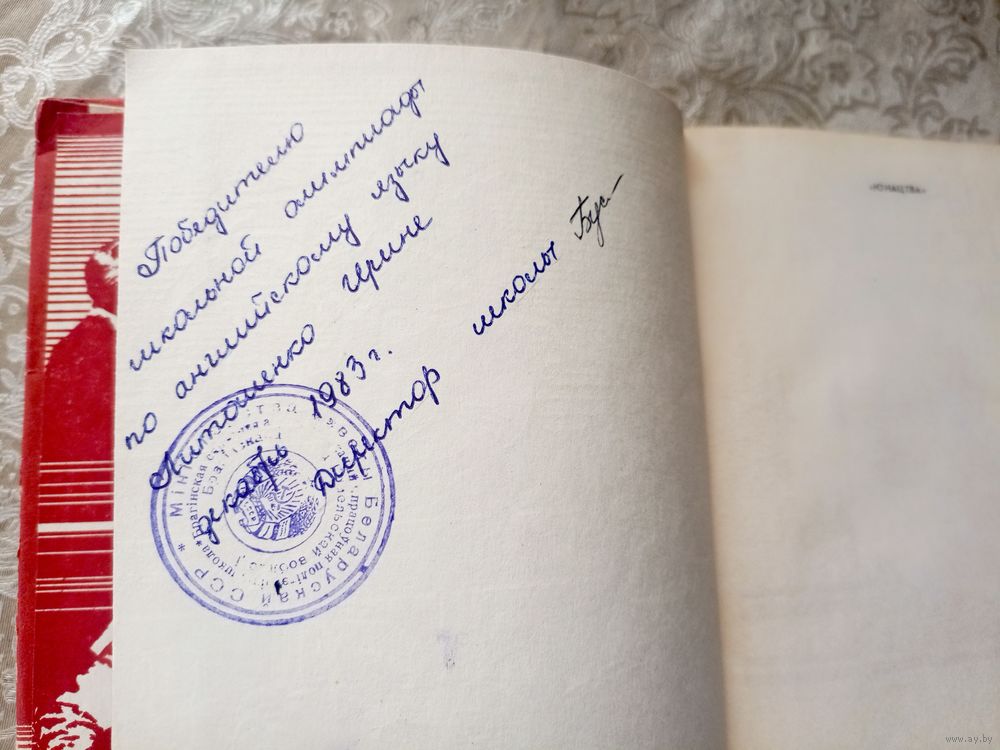 Победителю
школьной олимпиады
по английскому языку
Литошенко Ирине
декабрь 1983 г.
Директор школы
* Беларускай ССР *
Брагінская
школа
«ЮНАЦТВА»
www.ay.by